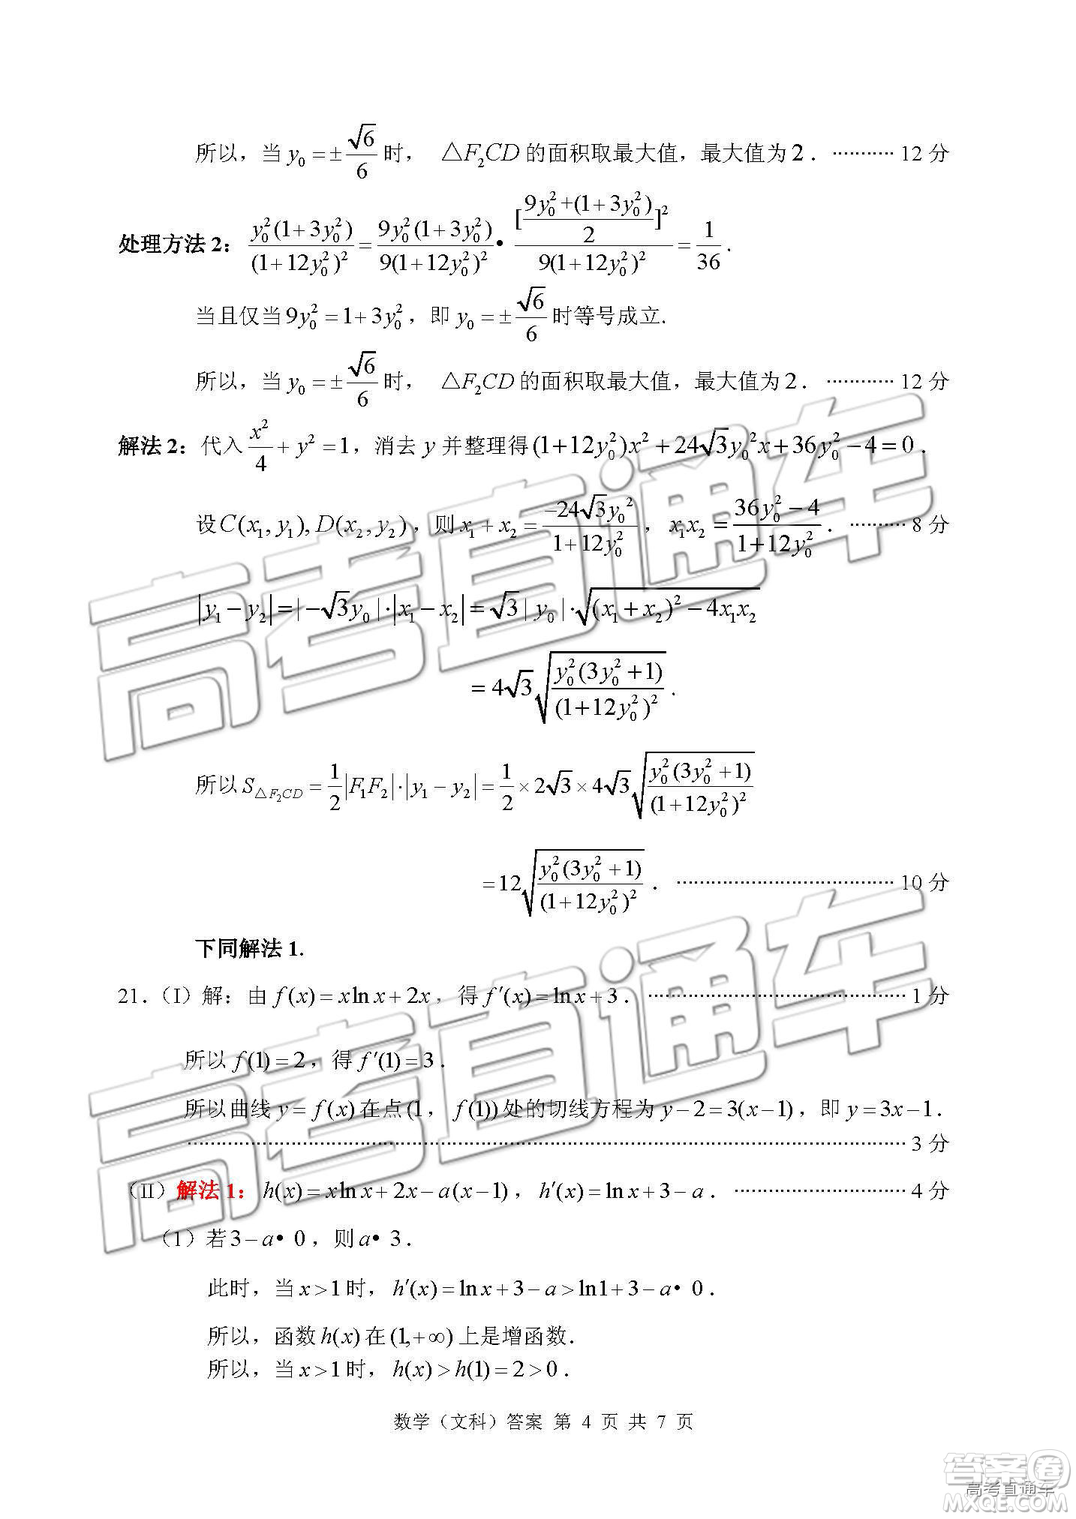 所以，当 y₀ = ±√6/6 时， △F₂CD 的面积取最大值，最大值为 2 ． ··········· 12 分
处理方法 2： y₀²(1+3y₀²)/(1+12y₀²)² = 9y₀²(1+3y₀²)/9(1+12y₀²)² • [(9y₀²+(1+3y₀²))/2]²/9(1+12y₀²)² = 1/36 ．
当且仅当 9y₀² = 1+3y₀² ，即 y₀ = ±√6/6 时等号成立.
所以，当 y₀ = ±√6/6 时， △F₂CD 的面积取最大值，最大值为 2 ． ············ 12 分
解法 2：代入 x²/4 + y² = 1，消去 y 并整理得 (1+12y₀²)x² + 24√3y₀²x + 36y₀² − 4 = 0 ．
设 C(x₁, y₁), D(x₂, y₂) ，则 x₁ + x₂ = −24√3y₀²/(1+12y₀²) ， x₁x₂ = (36y₀² − 4)/(1+12y₀²) ． ·········· 8 分
|y₁ − y₂| = |−√3y₀|·|x₁ − x₂| = √3|y₀|·√((x₁ + x₂)² − 4x₁x₂)
= 4√3√(y₀²(3y₀² + 1)/(1+12y₀²)²) ．
所以 S△F₂CD = 1/2|F₁F₂|·|y₁ − y₂| = 1/2 × 2√3 × 4√3√(y₀²(3y₀² + 1)/(1+12y₀²)²)
= 12√(y₀²(3y₀² + 1)/(1+12y₀²)²) ． ······································ 10 分
下同解法 1.
21．（I）解：由 f(x) = xlnx + 2x ，得 f′(x) = lnx + 3 ． ············································· 1 分
所以 f(1) = 2 ，得 f′(1) = 3 ．
所以曲线 y = f(x) 在点 (1， f(1)) 处的切线方程为 y − 2 = 3(x − 1) ，即 y = 3x − 1 ．
································································································ 3 分
（II）解法 1： h(x) = xlnx + 2x − a(x − 1) ， h′(x) = lnx + 3 − a ． ······························ 4 分
（1）若 3 − a • 0 ，则 a • 3 ．
此时，当 x > 1 时， h′(x) = lnx + 3 − a > ln1 + 3 − a • 0 ．
所以，函数 h(x) 在 (1, +∞) 上是增函数．
所以，当 x > 1 时， h(x) > h(1) = 2 > 0 ．
数学（文科）答案 第 4 页 共 7 页
高考直通车
高考直通车
答案圈
高考直通车
MXQE.COM